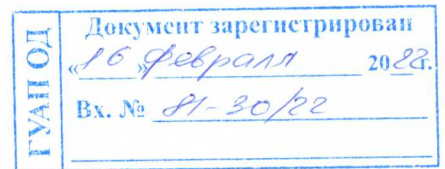 ГУАП ОД
Документ зарегистрирован
«16» февраля 2022г.
Вх. № 81-30/22